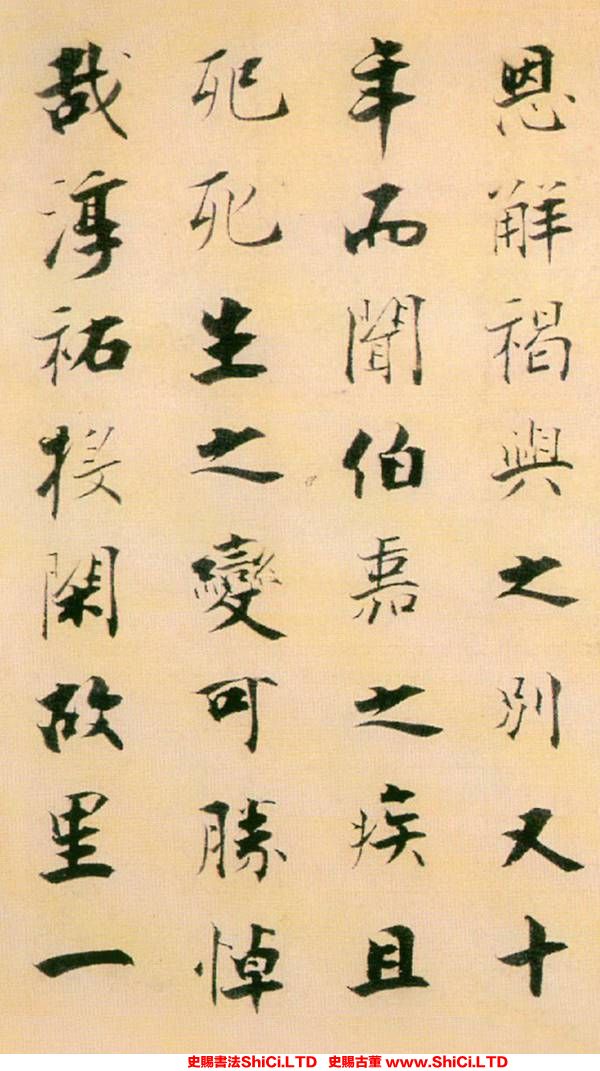 恩解褐與之別又十
年而聞伯嘉之疾且
死死生之變可勝悼
哉淳祐投閑故里一
史賜書法ShiCi.LTD 史賜古董 www.ShiCi.LTD